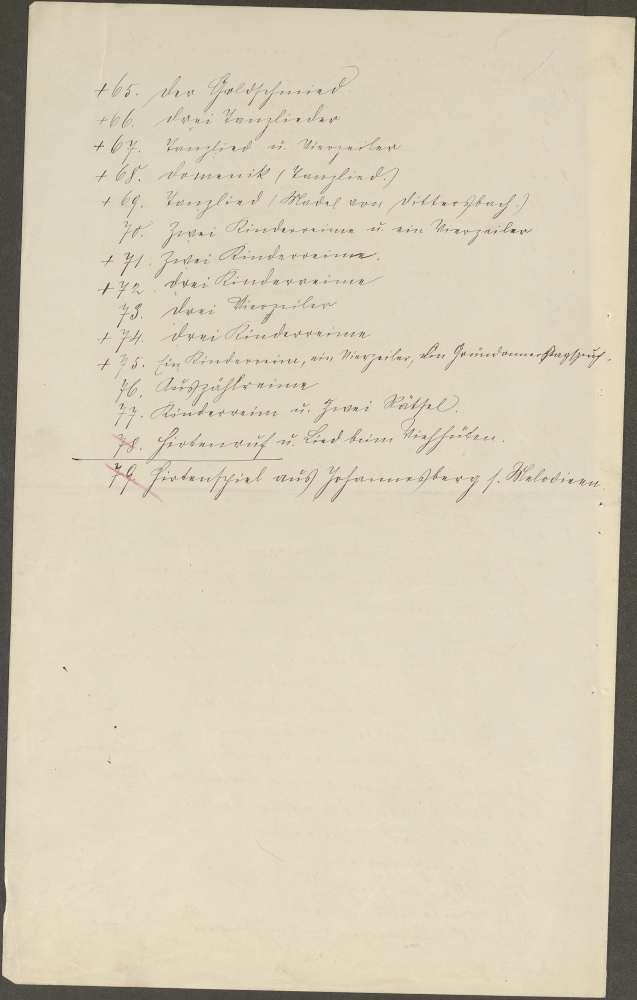 + 65. Der Goldschmied.
+ 66. Drei Tanzlieder
+ 67. Tanzlied u. Vierzeiler
+ 68. Domenik (Tanzlied.)
+ 69. Tanzlied (Madel von Dittersbach.)
70. Zwei Kinderreime u. ein Vierzeiler
+ 71. Zwei Kinderreime.
+ 72. Drei Kinderreime
73. Drei Vierzeiler
+ 74. Drei Kinderreime
+ 75. Ein Kinderreim, ein Vierzeiler, Ein Gründonnerstagspruch.
76. Auszählreime
77. Kinderreim u. Zwei Rätsel.
78. Hirtenruf u. Lied beim Viehhüten.
79. Hirtenspiel aus Johannesberg s. Melodieen.